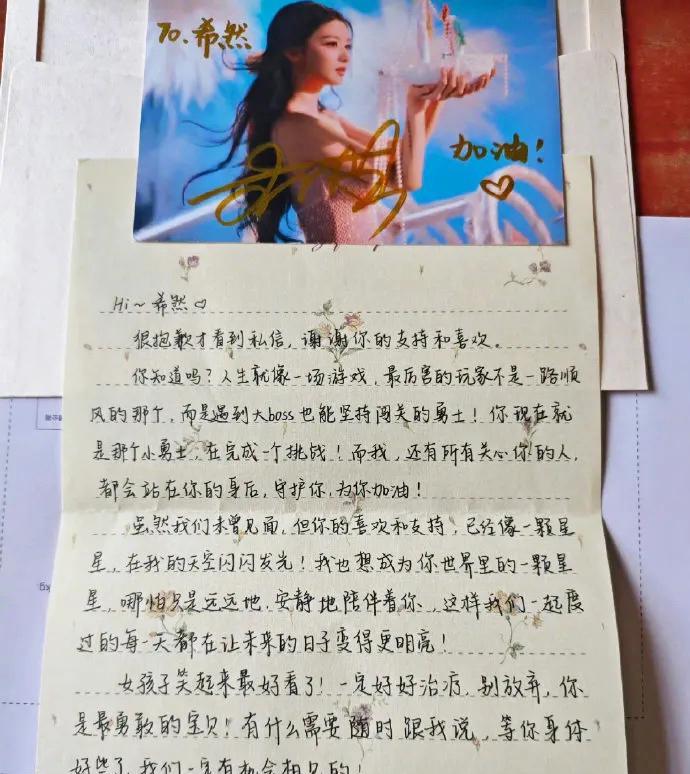 To.希然
加油!
Hi~希然♡
很抱歉才看到私信,谢谢你的支持和喜欢。
你知道吗?人生就像一场游戏,最厉害的玩家不是一路顺
风的那个,而是遇到大boss也能坚持闯关的勇士!你现在就
是那个小勇士,在完成一个挑战!而我,还有所有关心你的人,
都会站在你的身后,守护你,为你加油!
虽然我们未曾见面,但你的喜欢和支持,已经像一颗星
星,在我的天空闪闪发光!我也想成为你世界里的一颗星
星,哪怕只是远远地,安静地陪伴着你,这样我们一起度
过的每一天都在让未来的日子变得更明亮!
女孩子笑起来最好看了!一定好好治疗,别放弃,你
是最勇敢的宝贝!有什么需要随时跟我说,等你身体
好些了,我们一定有机会相见的!